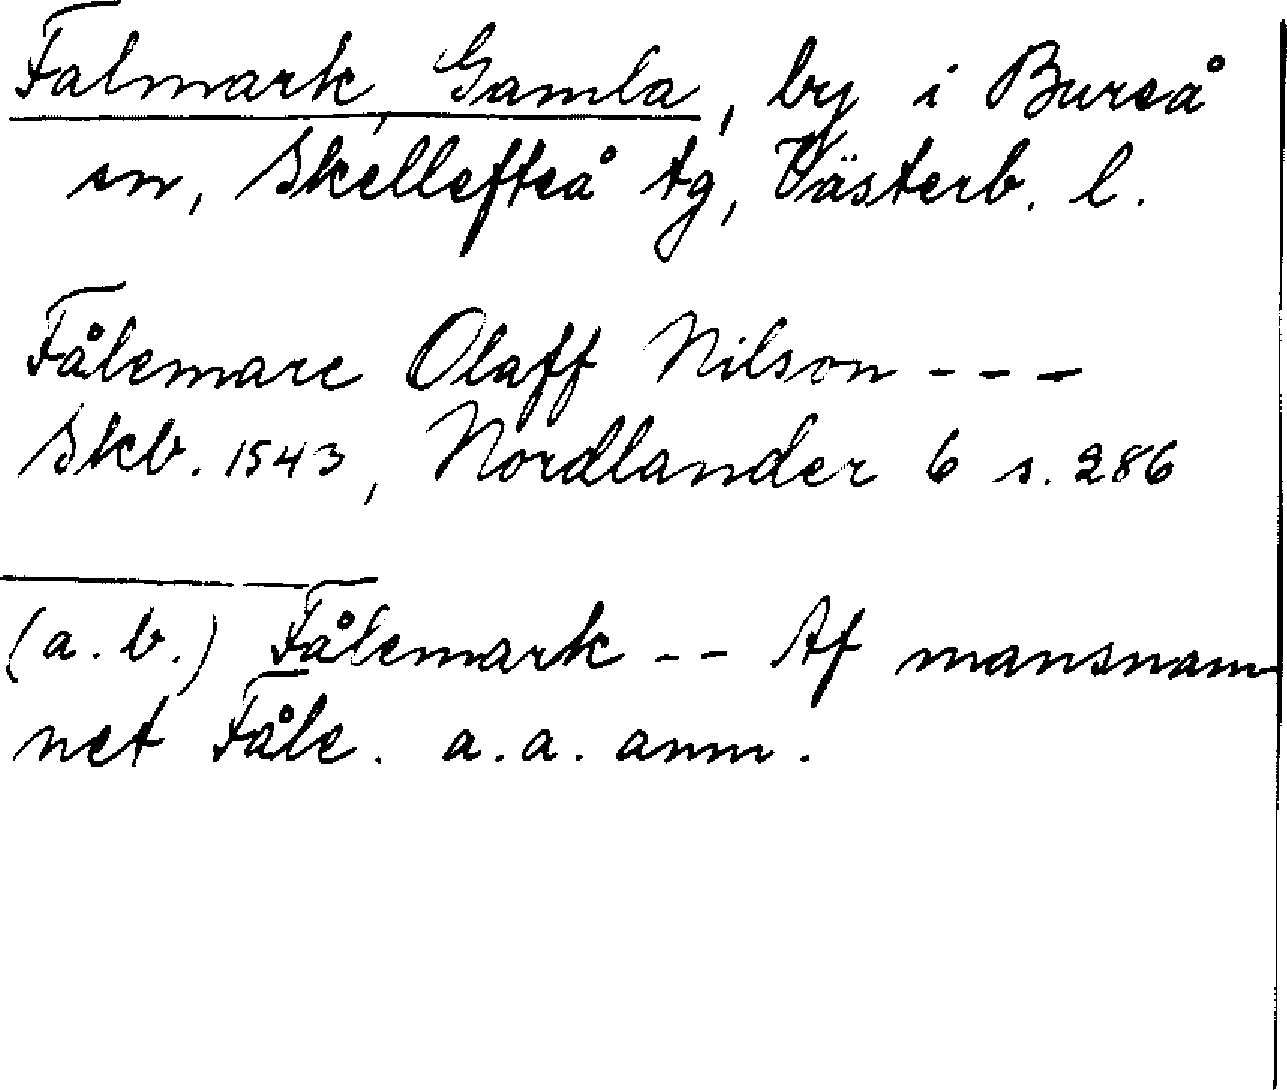 Falmark, Gamla, by i Bureå
sn, Skellefteå tg, Västerb. l.
Fålemarc Olaff Nilson - - -
Skb. 1543, Nordlander 6 s. 286
(a. b.) Fålemark - - Af mansnam-
net Fåle. a. a. anm.